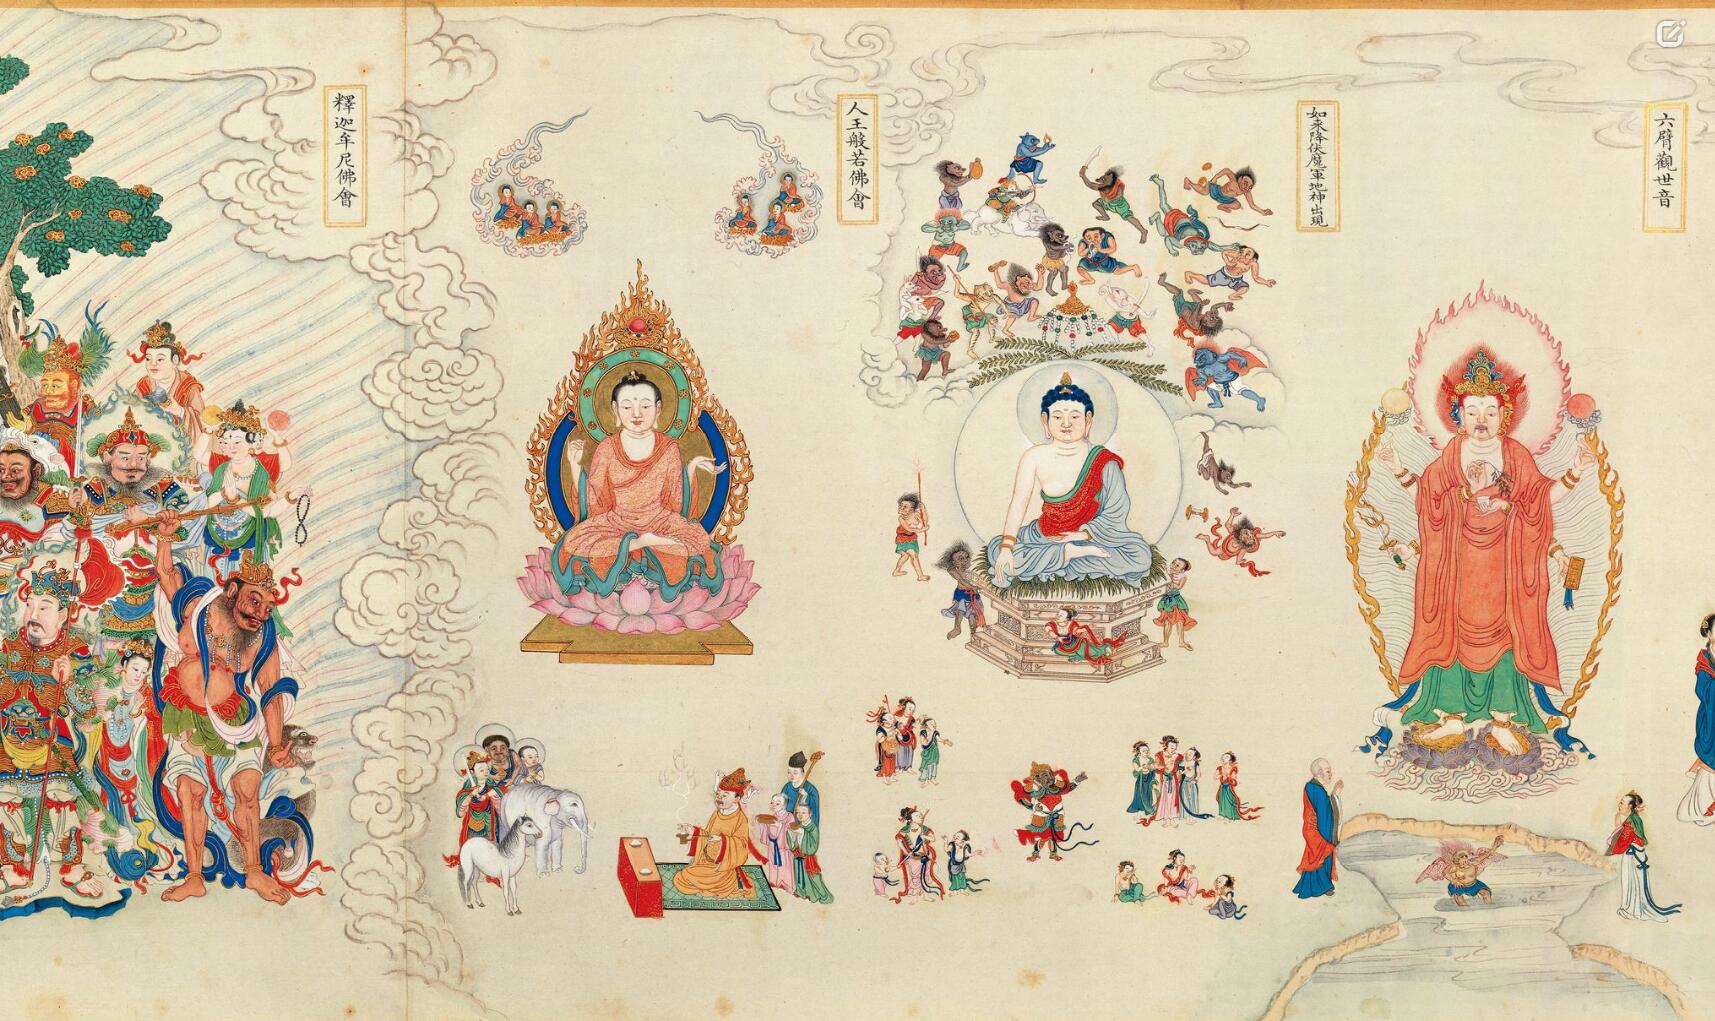 釋迦牟尼佛會
人王般若佛會
如来降伏魔軍地神出現
六臂觀世音